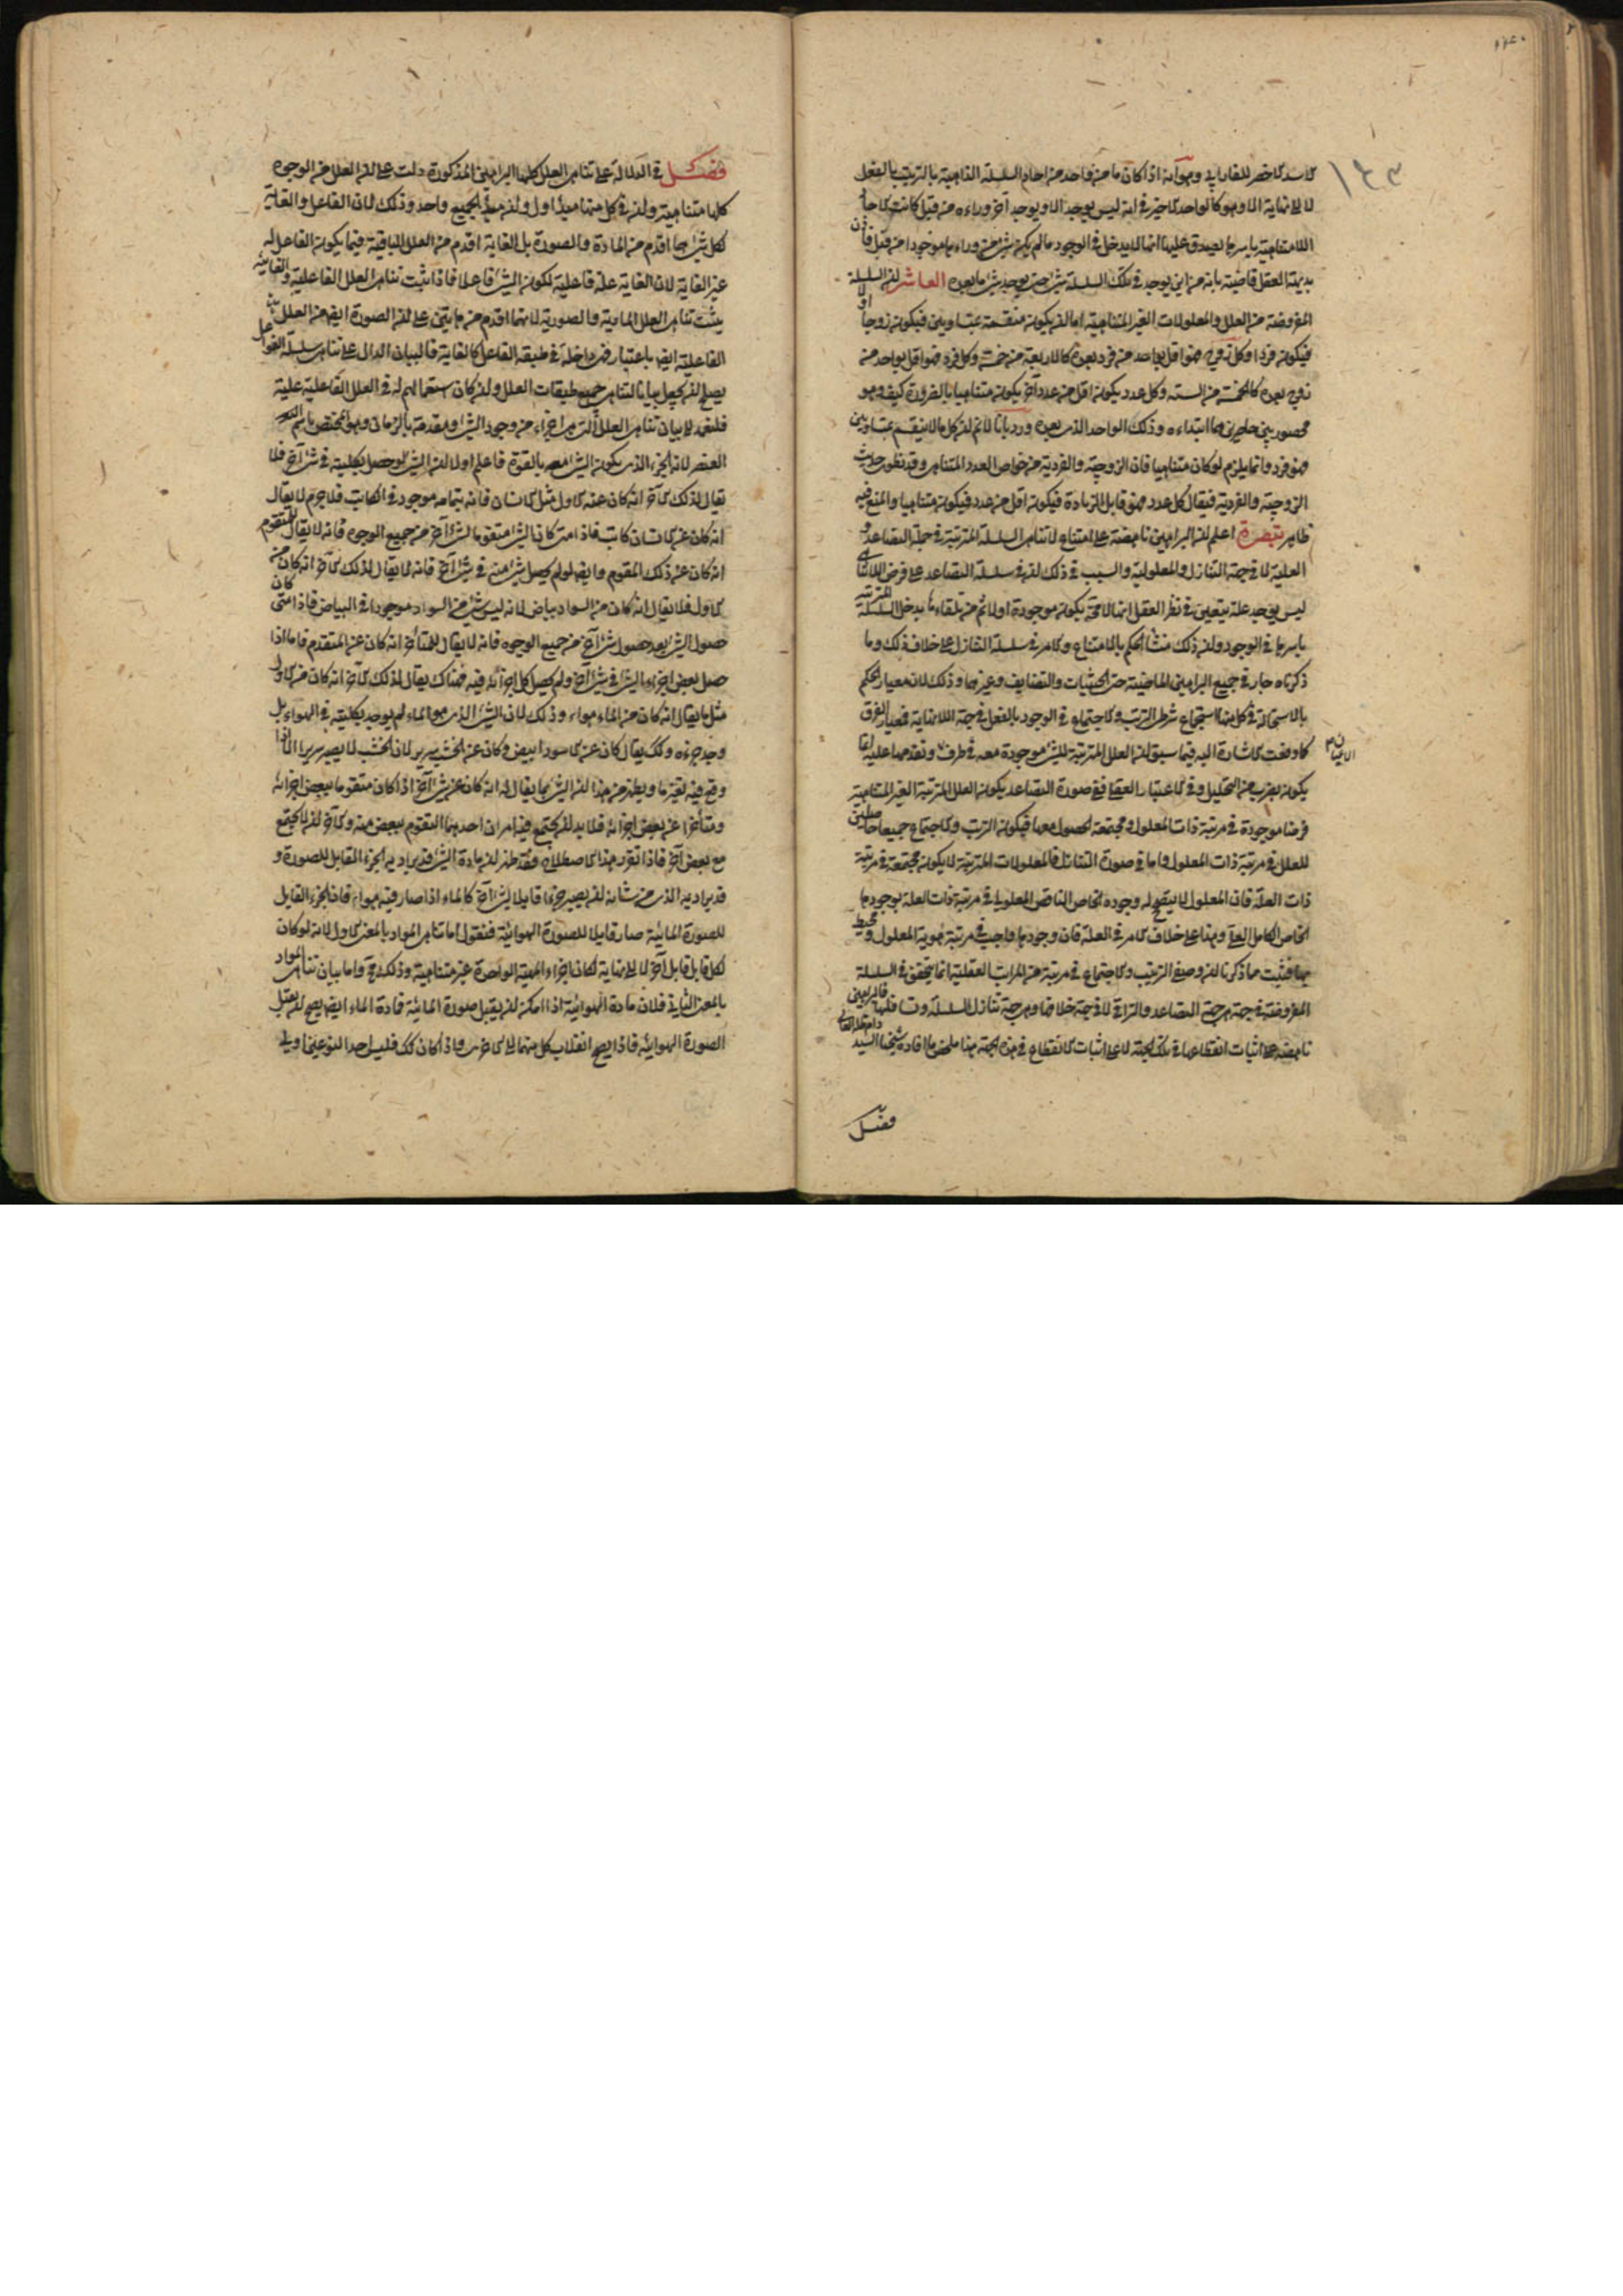 الاسد الاخصر للفارابي وهو انه اذا كان ما من واحد من احاد السلسلة الذاهبة بالترتيب بالفعل
لا الى نهاية الا وهو كالواحد الاخير في انه ليس يوجد الا ويوجد آخر وراءه من قبل كانت الاحاد
اللامتناهية باسرها يصدق عليها انها لا يدخل في الوجود ما لم يكن شئ من وراءها موجودا من قبل فاذن
بديهة العقل قاضية بانه من اين يوجد في تلك السلسلة شئ حتى يوجد شئ ما بعده العاشر ان السلسلة
المفروضة من العلل والمعلولات الغير المتناهية اما ان يكون منقسمة بمتساويين فيكون زوجا او لا
فيكون فردا وكل زوج فهو اقل بواحد من فرد بعده كالاربعة من خمسة وكل فرد فهو اقل بواحد من
زوج بعده كالخمسة من الستة وكل عدد يكون اقل من عدد آخر يكون متناهيا بالضرورة كيف وهو
محصور بين حاصرين هما ابتداءه وذلك الواحد الذي بعده ورد بانا لا نم ان كل ما لا ينقسم بمتساويين
فهو فرد وانما يلزم لو كان متناهيا فان الزوجية والفردية من خواص العدد المتناهي وقد يطوى حديث
الزوجية والفردية فيقال كل عدد فهو قابل للزيادة فيكون اقل من عدد فيكون متناهيا والمنع فيه
ظاهر تبصرة اعلم ان البراهين ناهضة على امتناع لا تناهي السلسلة المترتبة في جهة التصاعد و
العلية لا في جهة التنازل والمعلولية والسبب في ذلك ان في سلسلة التصاعد على فرض اللاتناهي
ليس يوجد علة يتعين في نظر العقل انها لا محة يكون موجودة اولا ثم من تلقاءها يدخل السلسلة المترتبة
باسرها في الوجود وان ذلك منشأ الحكم بالامتناع والامر في سلسلة التنازل على خلاف ذلك وما
ذكرناه جار في جميع البراهين الماضية حتى الحيثيات والتضايف وغيرهما وذلك لان معيار الحكم
بالاستحالة في كل منها استجماع شرطي الترتب والاجتماع في الوجود بالفعل في جهة اللانهاية فمعيار الفرق
كما وقعت الاشارة اليه فيما سبق ان العلل المترتبة للشئ موجودة معه في ظرف الاعيان وتقدمها عليه انما
يكون بضرب من التحليل وفي الاعتبار العقلي ففي صورة التصاعد يكون العلل المترتبة الغير المتناهية
فرضا موجودة في مرتبة ذات المعلول ومجتمعة الحصول معها فيكون الترتب والاجتماع جميعا حاصلين
للعلل في مرتبة ذات المعلول واما في صورة التنازل فالمعلولات المترتبة لا يكون مجتمعة في مرتبة
ذات العلة فان المعلول لا يتصح له وجوده الخاص الناقص المعلولي في مرتبة ذات العلة بوجودها
الخاص الكامل العلي وهذا على خلاف الامر في العلة فان وجودها واجب في مرتبة هوية المعلول ومحيط
بها فثبت مما ذكرنا ان وصفي الترتب والاجتماع في مرتبة من المراتب العقلية انما يتحقق في السلسلة
المفروضة في جهة هي جهة التصاعد والتراقي لا في جهة خلافها وهي جهة تنازل السلسلة وتسافلها فالبراهين
ناهضة على اثبات انقطاعها في تلك الجهة لا على اثبات الانقطاع في هذه الجهة هذا ملخص ما افاده شيخنا السيد دام ظله العالي
فصل
فصل في الدلالة على تناهي العلل كلها البراهين المذكورة دلت على ان العلل من الوجوه
كلها متناهية وان في كل منها مبدأ اول وان مبدأ الجميع واحد وذلك لان الفاعل والغاية
لكل شئ هما اقدم من المادة والصورة بل الغاية اقدم من العلل الباقية فيما يكون الفاعل له
غير الغاية لان الغاية علة فاعلية لكون الشئ فاعلا فاذا ثبت تناهي العلل الفاعلية والغائية
يثبت تناهي العلل المادية والصورية لانهما اقدم من هاتين على ان الصورة ايضا من العلل
الفاعلية ايضا باعتبار فهي داخلة في طبقة الفاعل كالغاية فالبيان الدال على تناهي سلسلة الفواعل
يصلح ان يجعل بيانا لتناهي جميع طبقات العلل وان كان استعمالهم له في العلل الفاعلية
فلنعد لبيان تناهي العلل التي هي اجزاء من وجود الشئ ويتقدمه بالزمان وهو المختص باسم
العنصر لانه الجزء الذي يكون الشئ معه بالقوة فاعلم اولا ان الشئ لو حصل بكليته في شئ آخر فلا
يقال لذلك الآخر انه كان عنه الاول مثل الانسان فانه بتمامه موجود في الكاتب فلا جرم لا يقال
انه كان عن الانسان كاتب فاذا متى كان الشئ متقوما لشئ آخر من جميع الوجوه فانه لا يقال للمتقوم
انه كان عن ذلك المقوم وايضا لو لم يحصل شئ منه في شئ آخر فانه لا يقال لذلك الآخر انه كان من
الاول فلا يقال انه كان من السواد بياض لانه ليس شئ من السواد موجودا في البياض فاذا متى كان
حصول الشئ بعد حصول شئ آخر من جميع الوجوه فانه لا يقال للمتأخر انه كان عن المتقدم فاما اذا
حصل بعض اجزاء الشئ في شئ آخر ولم يحصل كل اجزائه فيه فهناك يقال لذلك الآخر انه كان من الاول
مثل ما يقال انه كان من الماء هواء وذلك لان الشئ الذي هو الماء لم يوجد بكليته في الهواء بل
وجد جزءه وكك يقال كان عن الاسود ابيض وكان عن الخشب سرير لان الخشب لا يصير سريرا الا اذا
وقع فيه تغير ما ويظهر من هذا ان الشئ انما يقال له انه كان عن شئ آخر اذا كان متقوما ببعض اجزائه
ومتأخرا عن بعض اجزائه فلا بد ان يجتمع فيه امران احدهما التقوم ببعض منه والآخر ان لا يجتمع
مع بعض آخر فاذا تقرر هذا الاصطلاح فقد ظهر ان مادة الشئ قد يراد به الجزء القابل للصورة و
قد يراد به الذي من شانه ان يصير جزءا قابلا لشئ آخر كالماء اذا صار فيه هواء فان الجزء القابل
للصورة المائية صار قابلا للصورة الهوائية فنقول اما تناهي المواد بالمعنى الاول لانه لو كان
لكل قابل قابل آخر لا الى نهاية لكان اجزاء المهية الواحدة غير متناهية وذلك مح واما بيان تناهي المواد
بالمعنى الثاني فلان مادة الهوائية اذا امكن ان يقبل صورة المائية فمادة الماء ايضا يصح ان يقبل
الصورة الهوائية فاذا يصح انقلاب كل منهما الى الاخرى واذا كان كك فليس احد النوعين اولى